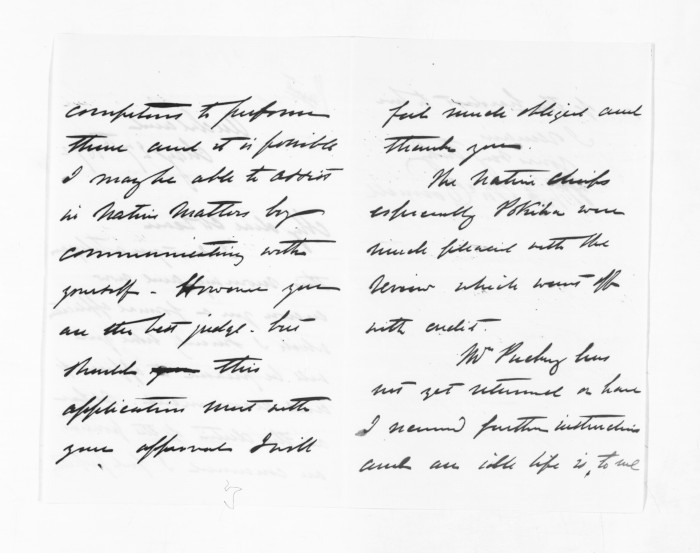 competent to perform
them and it is possible
I maybe able to assist
in Native Matters by
communicating with
yourself - However you
are the best judge - but
should you this
application meet with
your approval I will
feel much obliged and
thank you.
The Native chiefs
especially Pokiha were
much pleased with the
review which went off
with credit.
Mr Puckey has
not yet returned or have
I received further instructions
and an idle life is, to me